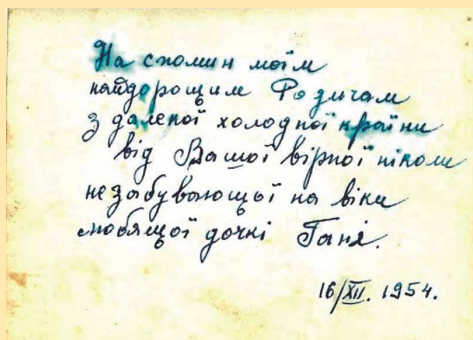 На спомин моїм
найдорощим Родичам
з далекої холодної країни
від Вашої вірної ніколи
незабувающої на віки
любящої дочкі Ганя.
16/XII. 1954.